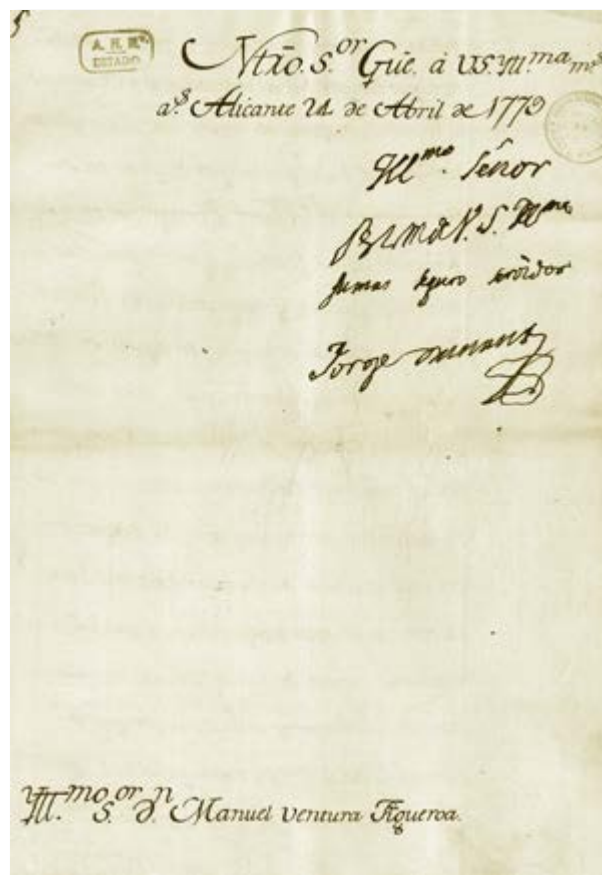 5
A. H. N.
ESTADO
Ntrõ. S.or Gũe. á VS. Yll.ma m.s
a.s Alicante 24 de Abril de 1779
Yll.mo Señor
BLM de V. S. Yll.ma
su mas seguro servidor
Jorge
Yll.mo S.or D.n Manuel Ventura Figueroa.